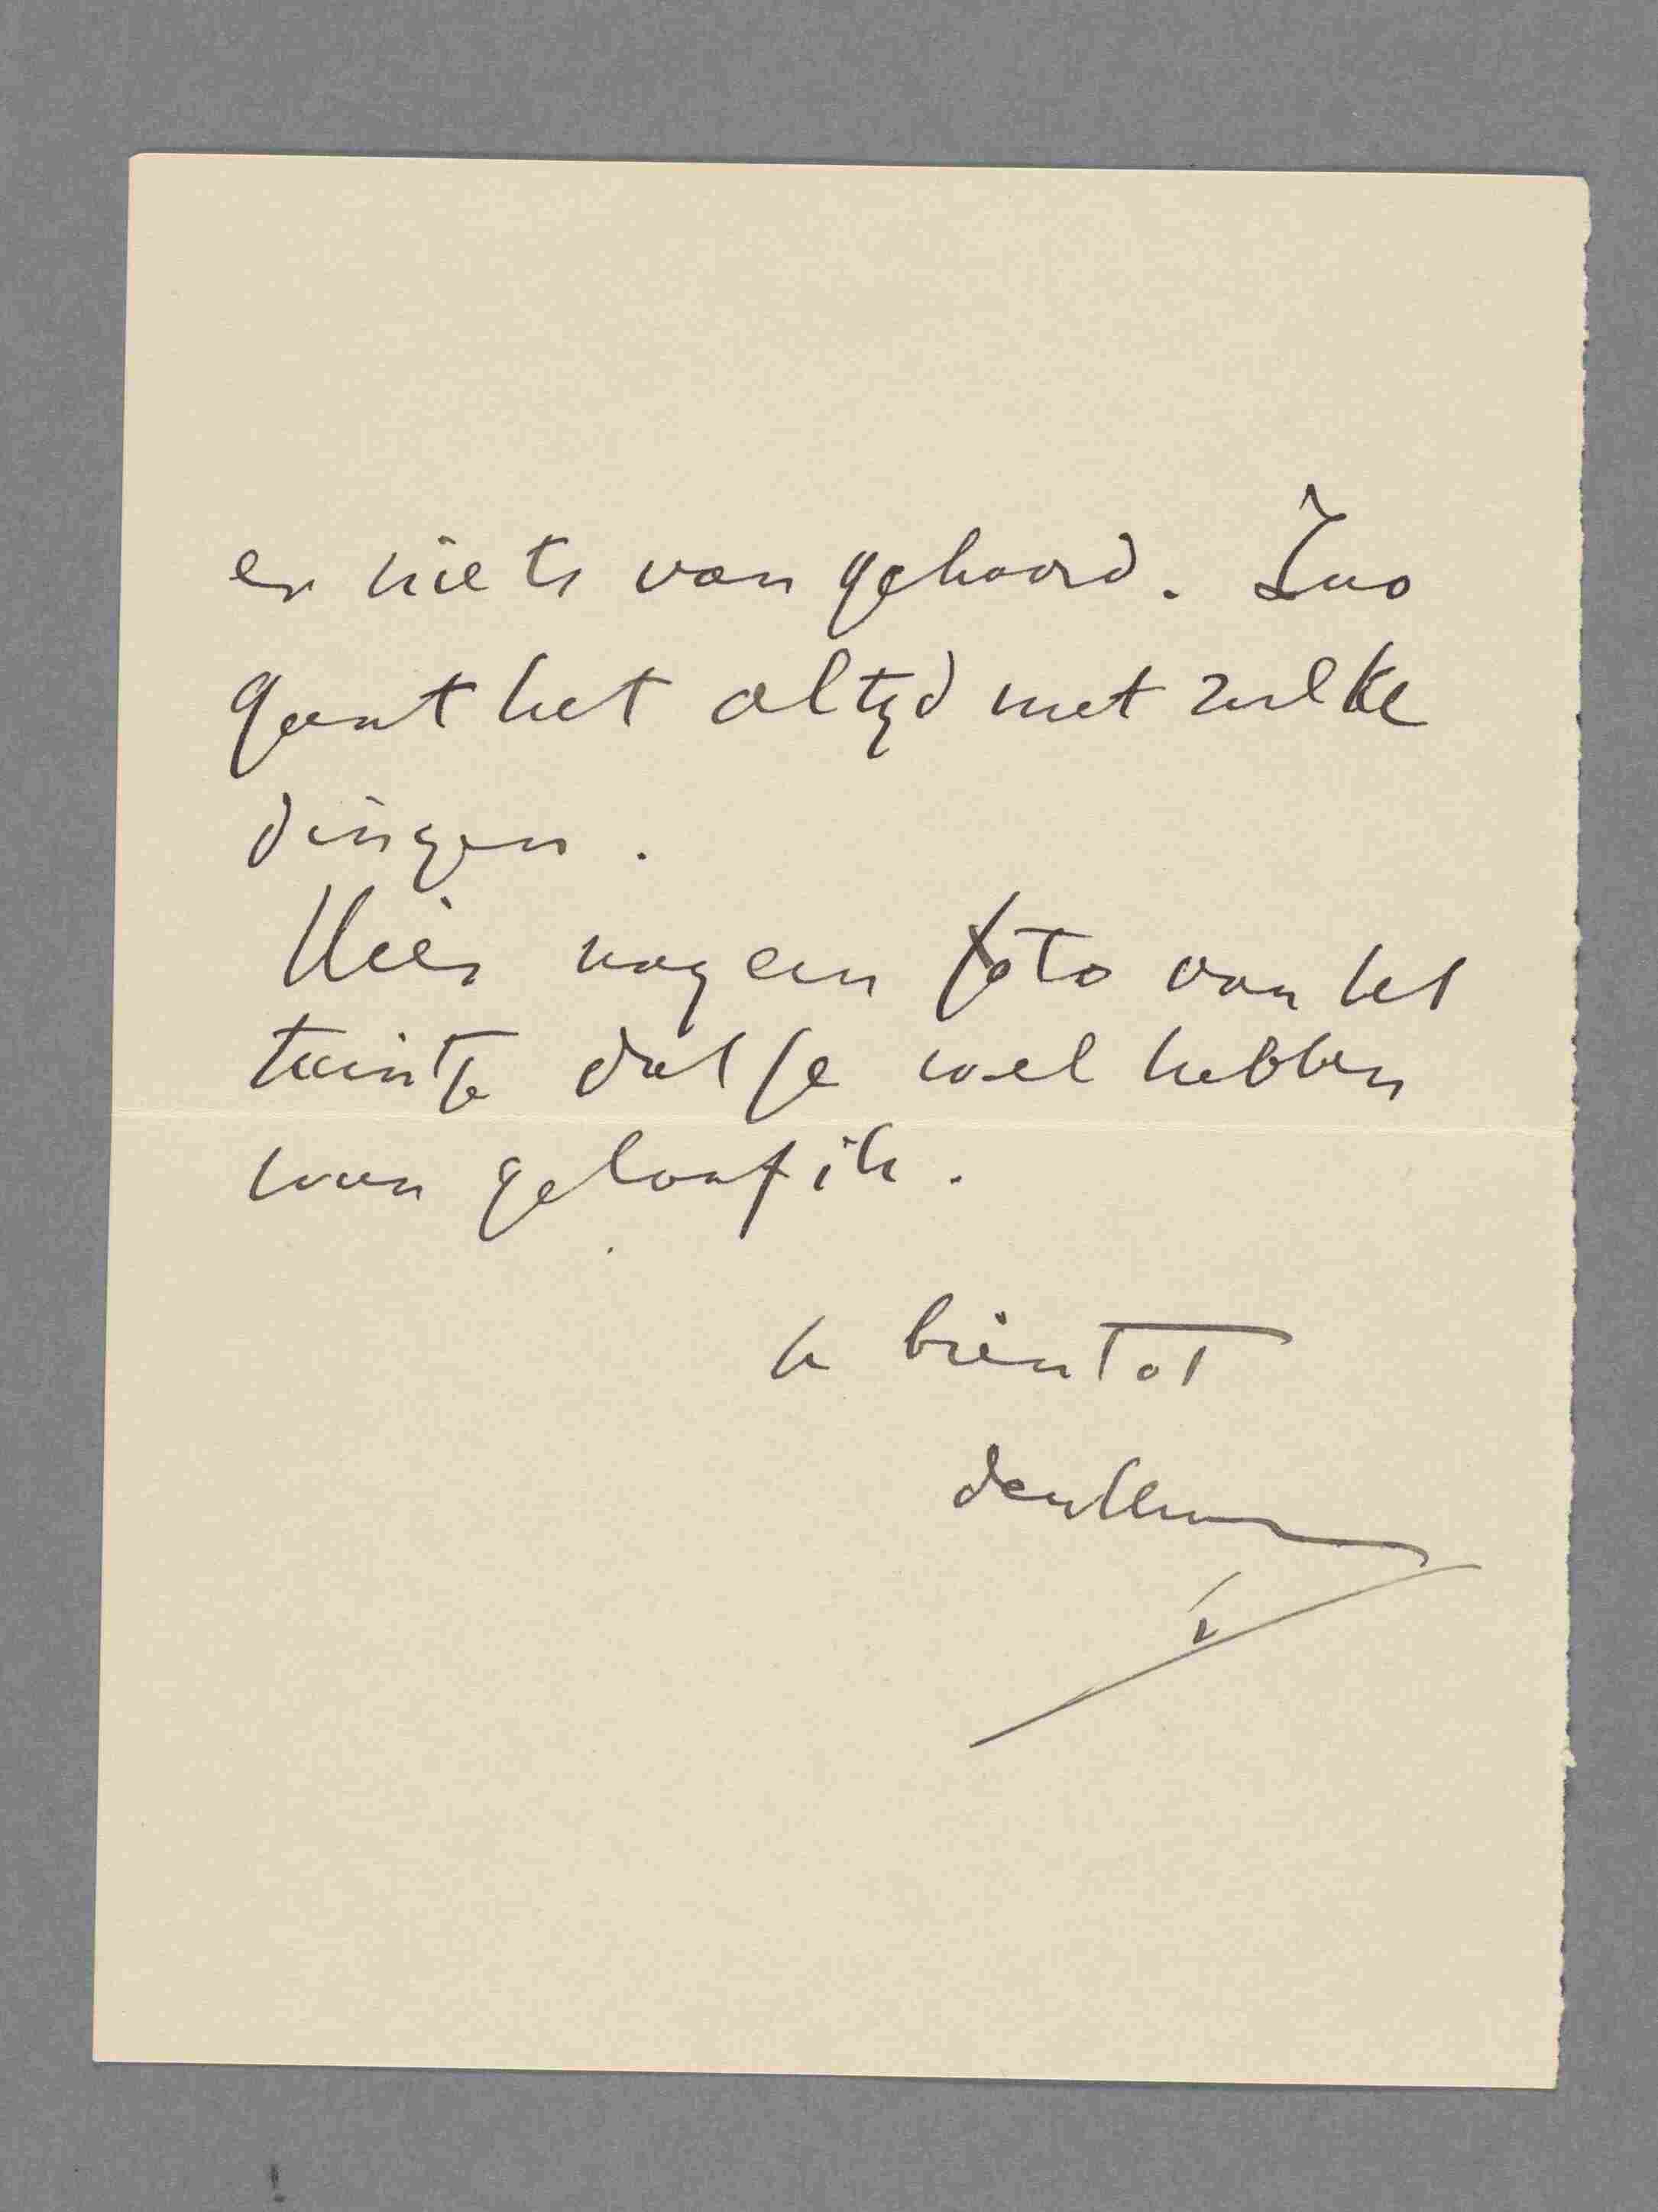 er niets van gehoord. Zoo
gaat het altyd met zulke
dingen.
Hier nog een foto van het
tuintje dat je wel hebben
wou geloof ik.
à bientot